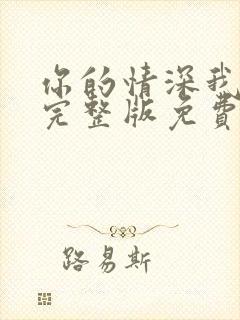 你的情深我
完整版免费
路易斯